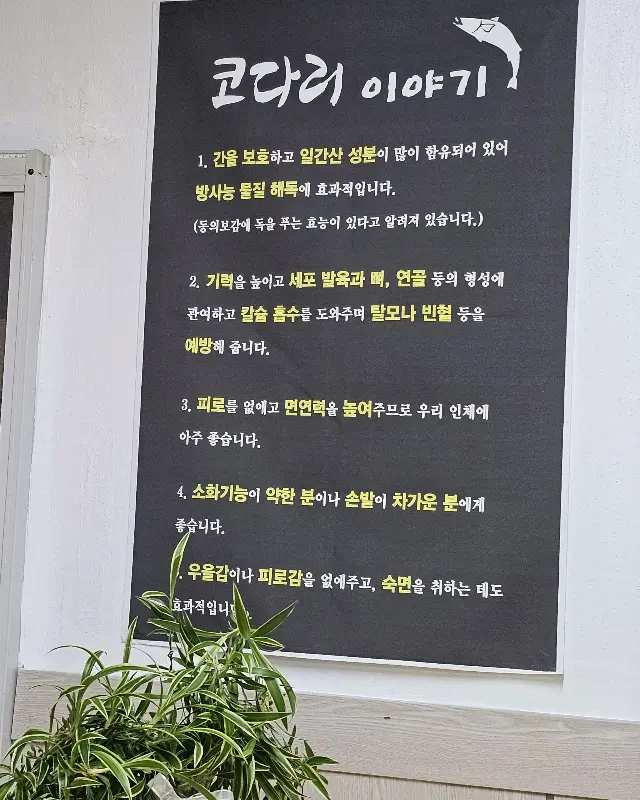 코다리 이야기
1. 간을 보호하고 일간산 성분이 많이 함유되어 있어
방사능 물질 해독에 효과적입니다.
(동의보감에 독을 푸는 효능이 있다고 알려져 있습니다.)
2. 기력을 높이고 세포 발육과 뼈, 연골 등의 형성에
관여하고 칼슘 흡수를 도와주며 탈모나 빈혈 등을
예방해 줍니다.
3. 피로를 없애고 면연력을 높여주므로 우리 인체에
아주 좋습니다.
4. 소화기능이 약한 분이나 손발이 차가운 분에게
좋습니다.
. 우울감이나 피로감을 없애주고, 숙면을 취하는 데도
효과적입니다